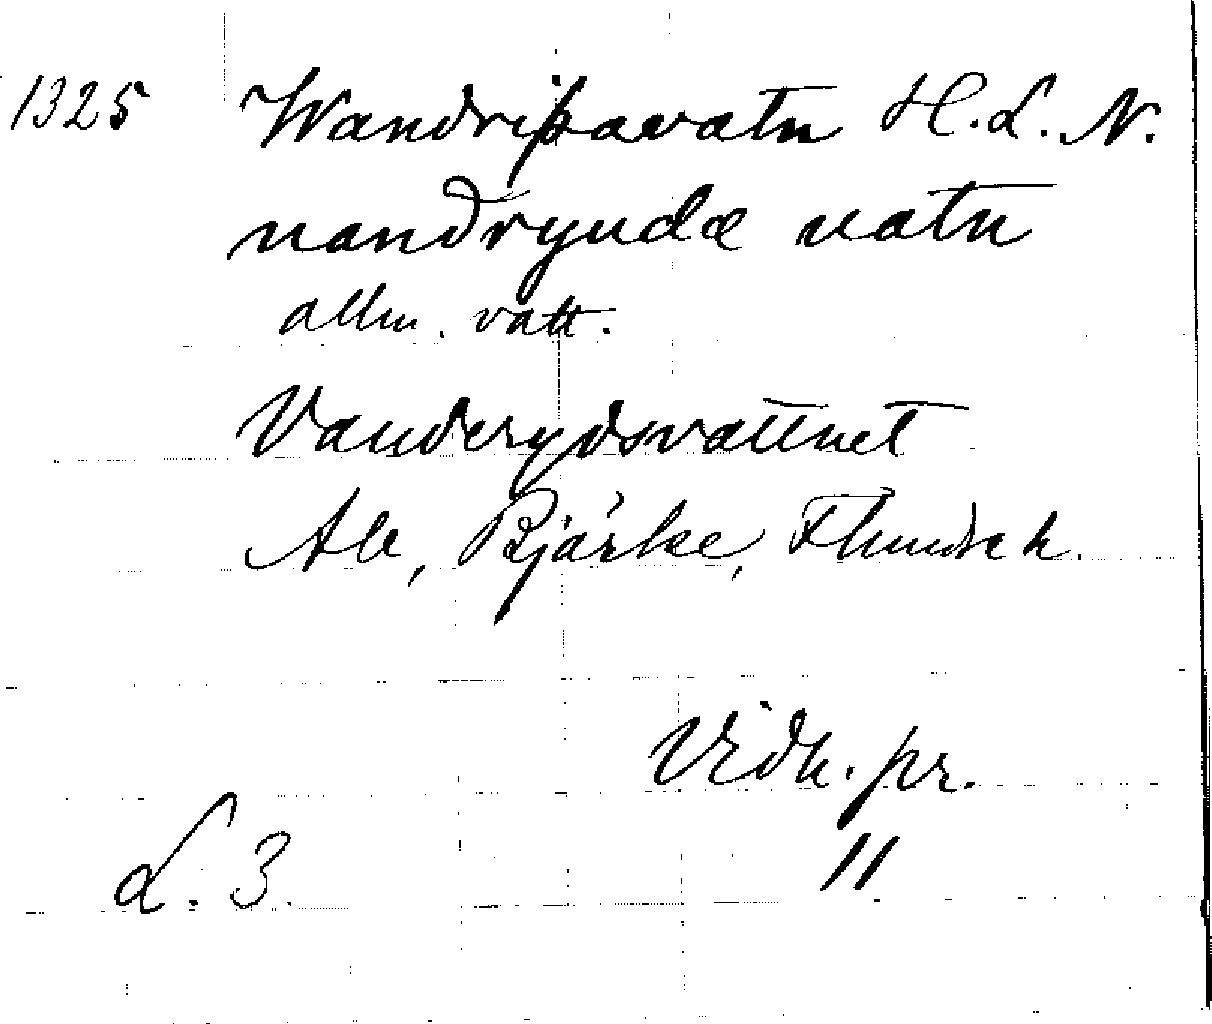 1325 Wandriþavatn H. L. N.
uandryudæ uatn
allm. vatt.
Vanderydsvattnet
Ale, Bjärke, Flundre h.
Vidh. pr.
L. 3. 11